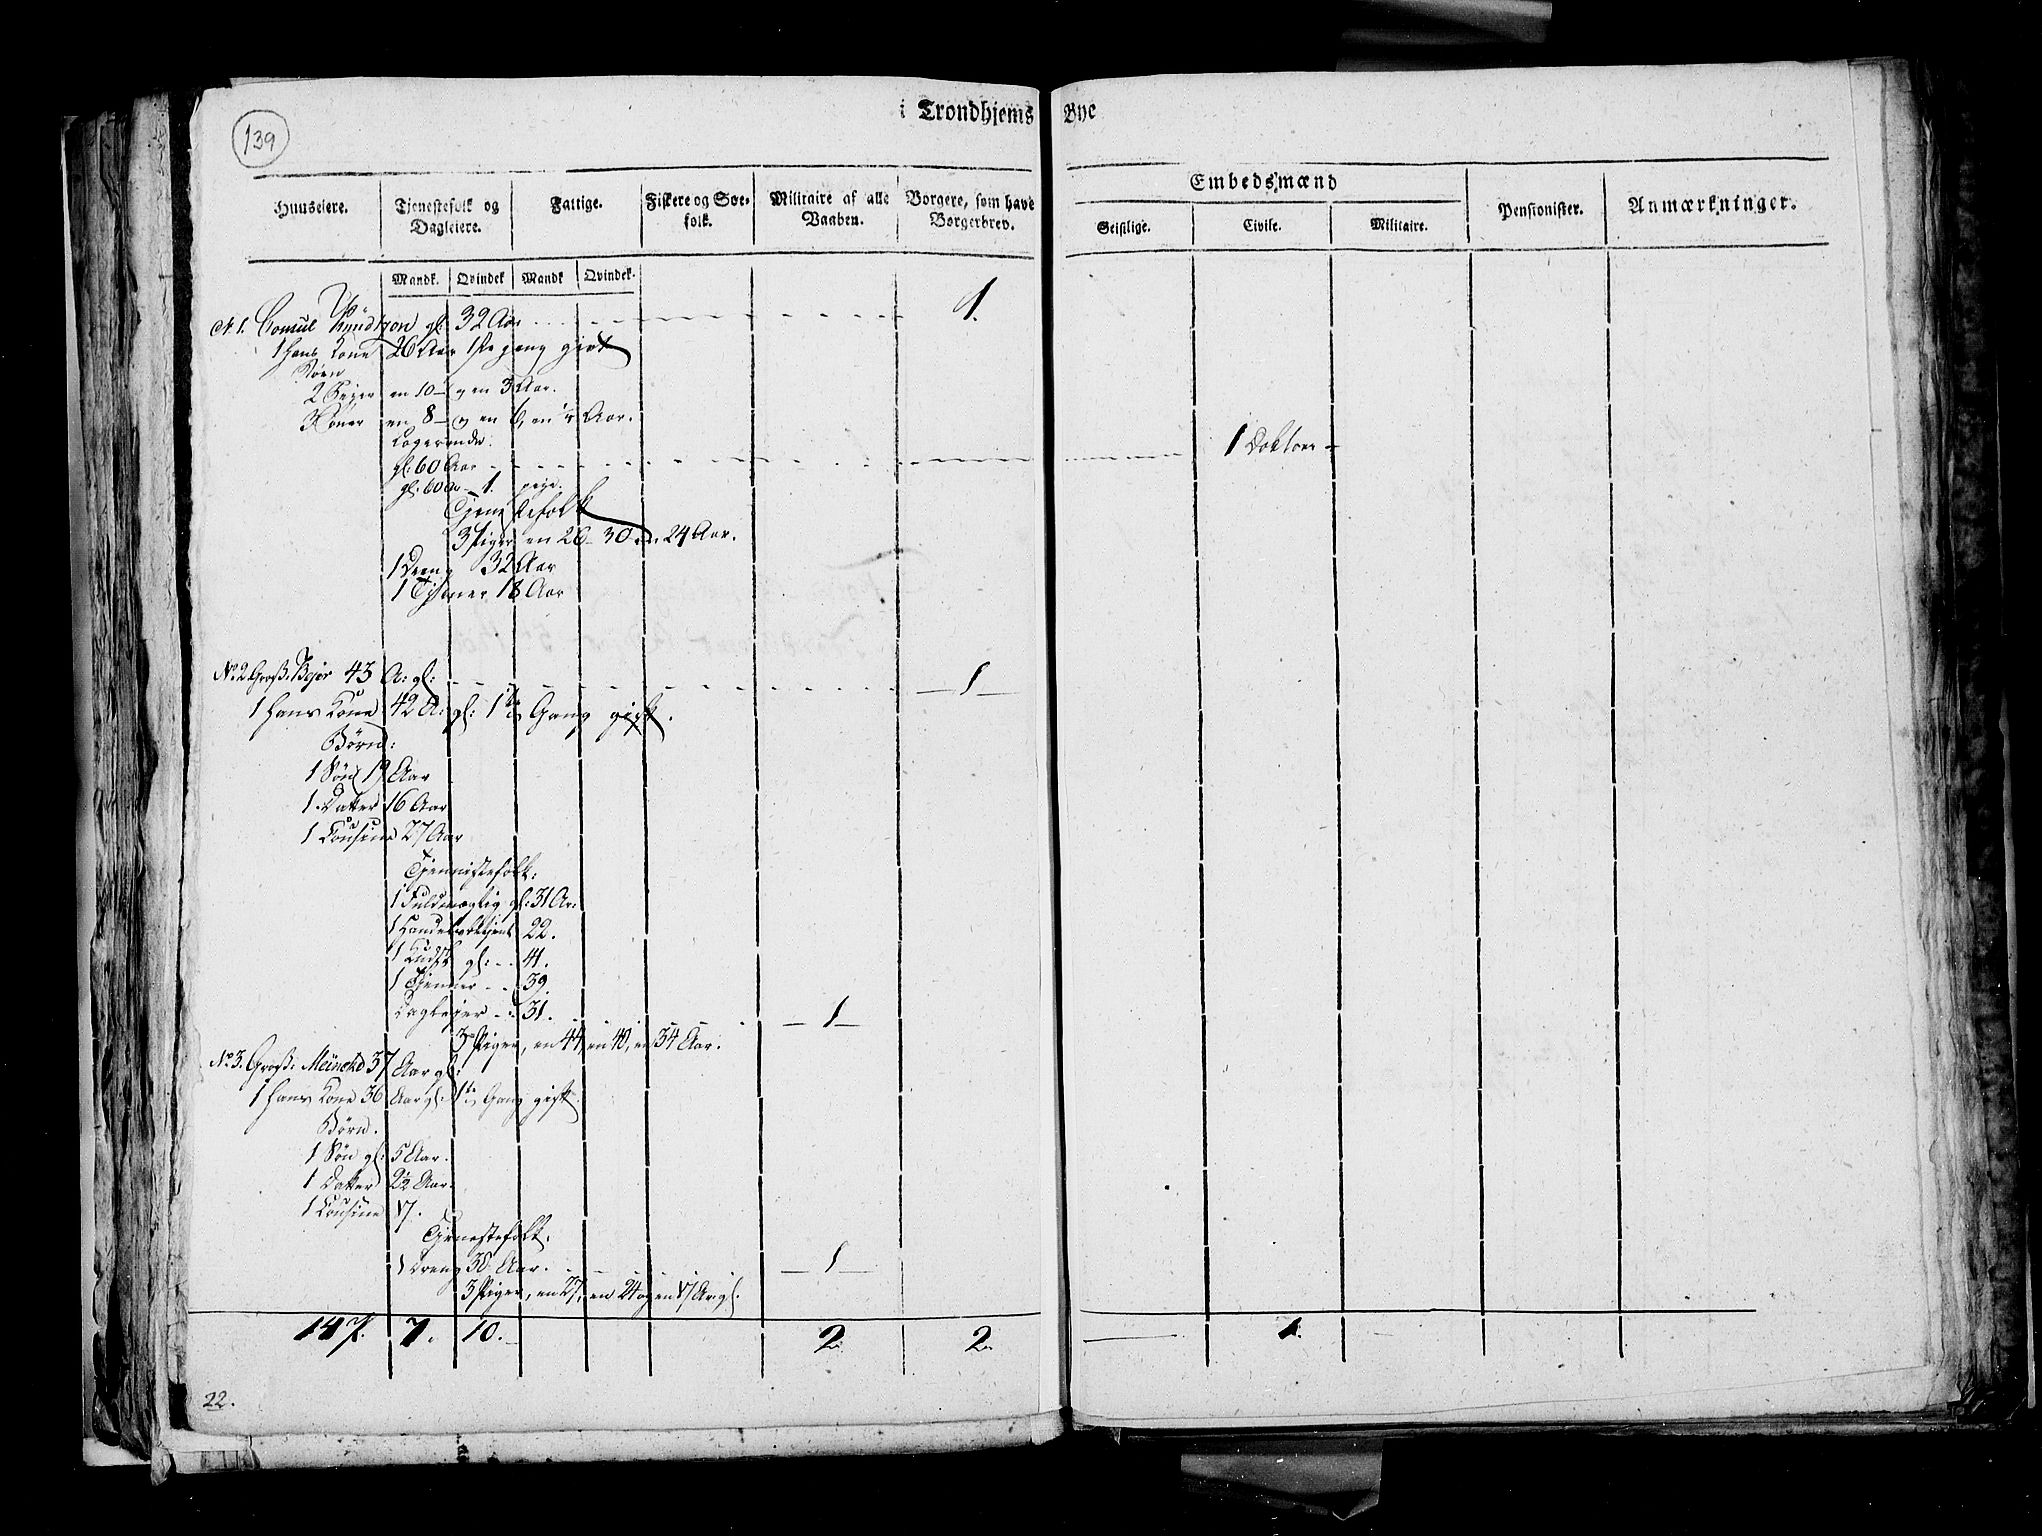 139
i Trondhjems Bye
Huuseiere. Tjenestefolk og Dagleiere. Fattige. Fiskere og Søefolk. Militaire af alle Vaaben. Borgere, som have Borgerbrev. Embedsmænd Pensionister. Anmærkninger.
Geistlige. Civile. Militaire.
Mandk. Qvindek Mandk Qvindek.
No 1. Consul Knudtzon gl: 32 Aar 1.
1 hans Kone 26 Aar 1ste gang givt
Børn
2 Piger en 10 og en 3 Aar.
3 Søner en 8 og en 6, en Aar.
Logerende.
gl: 60 Aar 1 Doktor
gl: 60 A 1. pige.
Tjenestefolk
3 Piger en 26 30 24 Aar.
1 Dreng 32 Aar
1 Tjener 18 Aar
No 2. Gross. Bejer 43 A: gl: 1
1 hans Kone 42 A: gl: 1te Gang gift.
Børn:
1 Søn 19 Aar
1 Datter 16 Aar
1 Cousine 27 Aar
Tjennistefolk:
1 Fuldmægtig gl: 31 Ar:
1 Handelsbetjent 22.
1 Kudsk gl: 41.
1 Tjenner 39
Daglejer 31. 1
3 Piger, en 44, en 40, en 34 Aar.
No 3. Gross: Meincke 37 Aar gl:
1 hans Kone 36 Aar gl: 1te Gang gift.
Børn.
1 Søn gl: 5 Aar.
1 Datter 2½ Aar.
1 Cousine 17.
Tjenestefolk.
1 Dreng 30 Aar. 1
3 Piger, en 27, en 24 og en 17 Ar gl.
147. 7. 10. 2. 2. 1.
22.